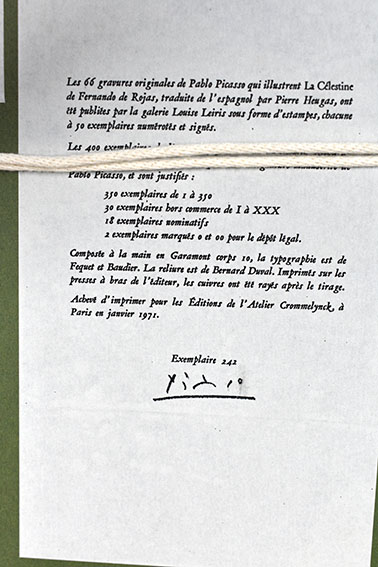 Les 66 gravures originales de Pablo Picasso qui illustrent La Célestine
de Fernando de Rojas, traduite de l'espagnol par Pierre Heugas, ont
été publiées par la galerie Louise Leiris sous forme d'estampes, chacune
à 50 exemplaires numérotés et signés.
Les 400 exemplaires
Pablo Picasso, et sont justifiés :
350 exemplaires de 1 à 350
30 exemplaires hors commerce de I à XXX
18 exemplaires nominatifs
2 exemplaires marqués 0 et 00 pour le dépôt légal.
Composée à la main en Garamont corps 10, la typographie est de
Fequet et Baudier. La reliure est de Bernard Duval. Imprimés sur les
presses à bras de l'éditeur, les cuivres ont été rayés après le tirage.
Achevé d'imprimer pour les Éditions de l'Atelier Crommelynck, à
Paris en janvier 1971.
Exemplaire 242
Picasso